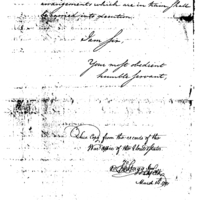 arrangements which are in train shall
be carried into execution.
I am Sir,
Your most obedient
humble servant,
true Copy from the records of the
War office of the United States
March